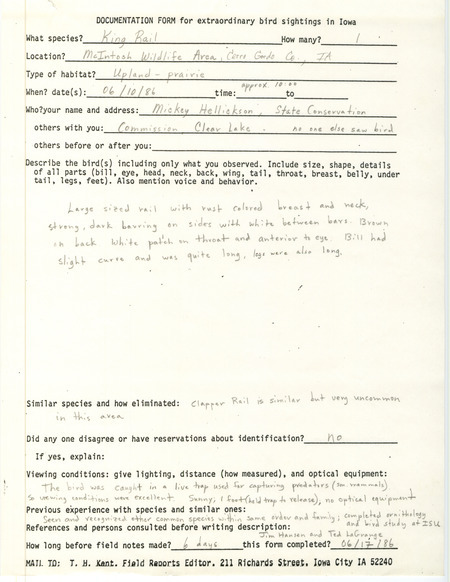 DOCUMENTATION FORM for extraordinary bird sightings in Iowa
What species? King Rail How many? 1
Location? McIntosh Wildlife Area, Cerro Gordo Co., IA
Type of habitat? Upland - prairie
When? date(s): 06/10/86 time: approx 10:00 to
Who?your name and address: Mickey Hellickson, State Conservation
others with you: Commission Clear Lake. no one else saw bird
others before or after you:
Describe the bird(s) including only what you observed. Include size, shape, details
of all parts (bill, eye, head, neck, back, wing, tail, throat, breast, belly, under
tail, legs, feet). Also mention voice and behavior.
Large sized rail with rust colored breast and neck,
strong, dark barring on sides with white between bars. Brown
on back. White patch on throat and anterior to eye. Bill had
slight curve and was quite long, legs were also long.
Similar species and how eliminated: Clapper Rail is similar but very uncommon
in this area
Did any one disagree or have reservations about identification? no
If yes, explain:
Viewing conditions: give lighting, distance (how measured), and optical equipment:
The bird was caught in a live trap used for capturing predators (sm. mammals)
so viewing conditions were excellent Sunny, 1 foot (held trap to release), no optical equipment
Previous experience with species and similar ones:
Seen and recognized other common species within same order and family; completed ornithology
and bird study at ISU
References and persons consulted before writing description:
Jim Hansen and Ted LaGrange
How long before field notes made? 6 days this form completed? 06/17/86
MAIL TO: T. H. Kent. Field Reports Editor. 211 Richards Street, Iowa City IA 52240